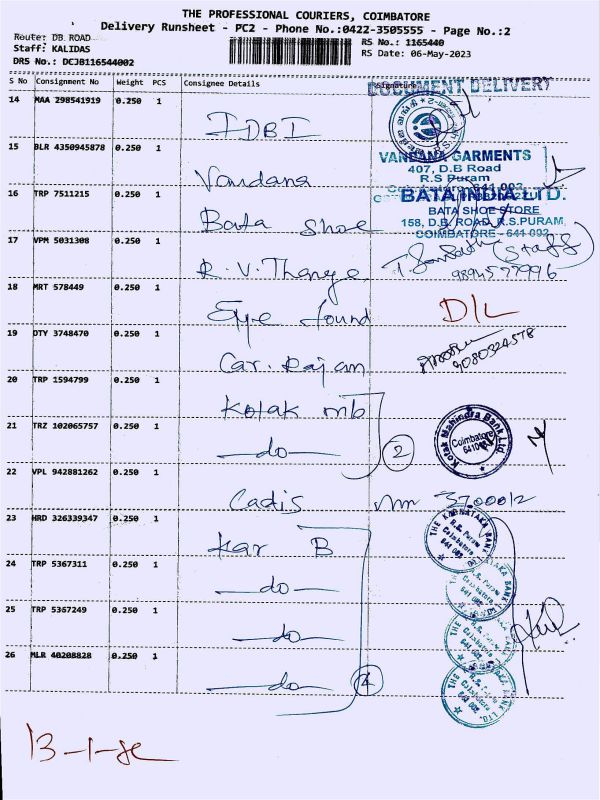 THE PROFESSIONAL COURIERS, COIMBATORE
Delivery Runsheet - PC2 - Phone No.:0422-3505555 - Page No.:2
Route: DB ROAD
RS No.: 1165440
Staff: KALIDAS
RS Date: 06-May-2023
DRS No.: DCJB116544002
S No Consignment No Weight PCS Consignee Details Signature
DOCUMENT DELIVERY
14 MAA 298541919 0.250 1
IDBI
15 BLR 4350945878 0.250 1
VANDANA GARMENTS
407, D.B Road
R.S Puram
Coimbatore 641 002
Vandana
16 TRP 7511215 0.250 1
BATA INDIA LTD.
BATA SHOE STORE
158, D.B. ROAD, R.S.PURAM,
COIMBATORE - 641 002
Bata Shoe
17 VPM 5031308 0.250 1
(Staff)
9894577996
R. V.
18 MRT 578449 0.250 1
found
D/L
19 DTY 3748470 0.250 1
9080324578
Car. Rajan
20 TRP 1594799 0.250 1
Kotak mb
21 TRZ 102065757 0.250 1
Kotak Mahindra Bank Ltd.
Coimbatore
do
2
22 VPL 942881262 0.250 1
Cadis
370002
23 HRD 326339347 0.250 1
THE KARNATAKA BANK LTD.
R.S. Puram
Coimbatore
641 002
Kar B
24 TRP 5367311 0.250 1
R.S. Puram
Coimbatore
641 002
do
25 TRP 5367249 0.250 1
R.S. Puram
Coimbatore
do
26 MLR 40208828 0.250 1
R.S. Puram
Coimbatore
do
4
13-1-